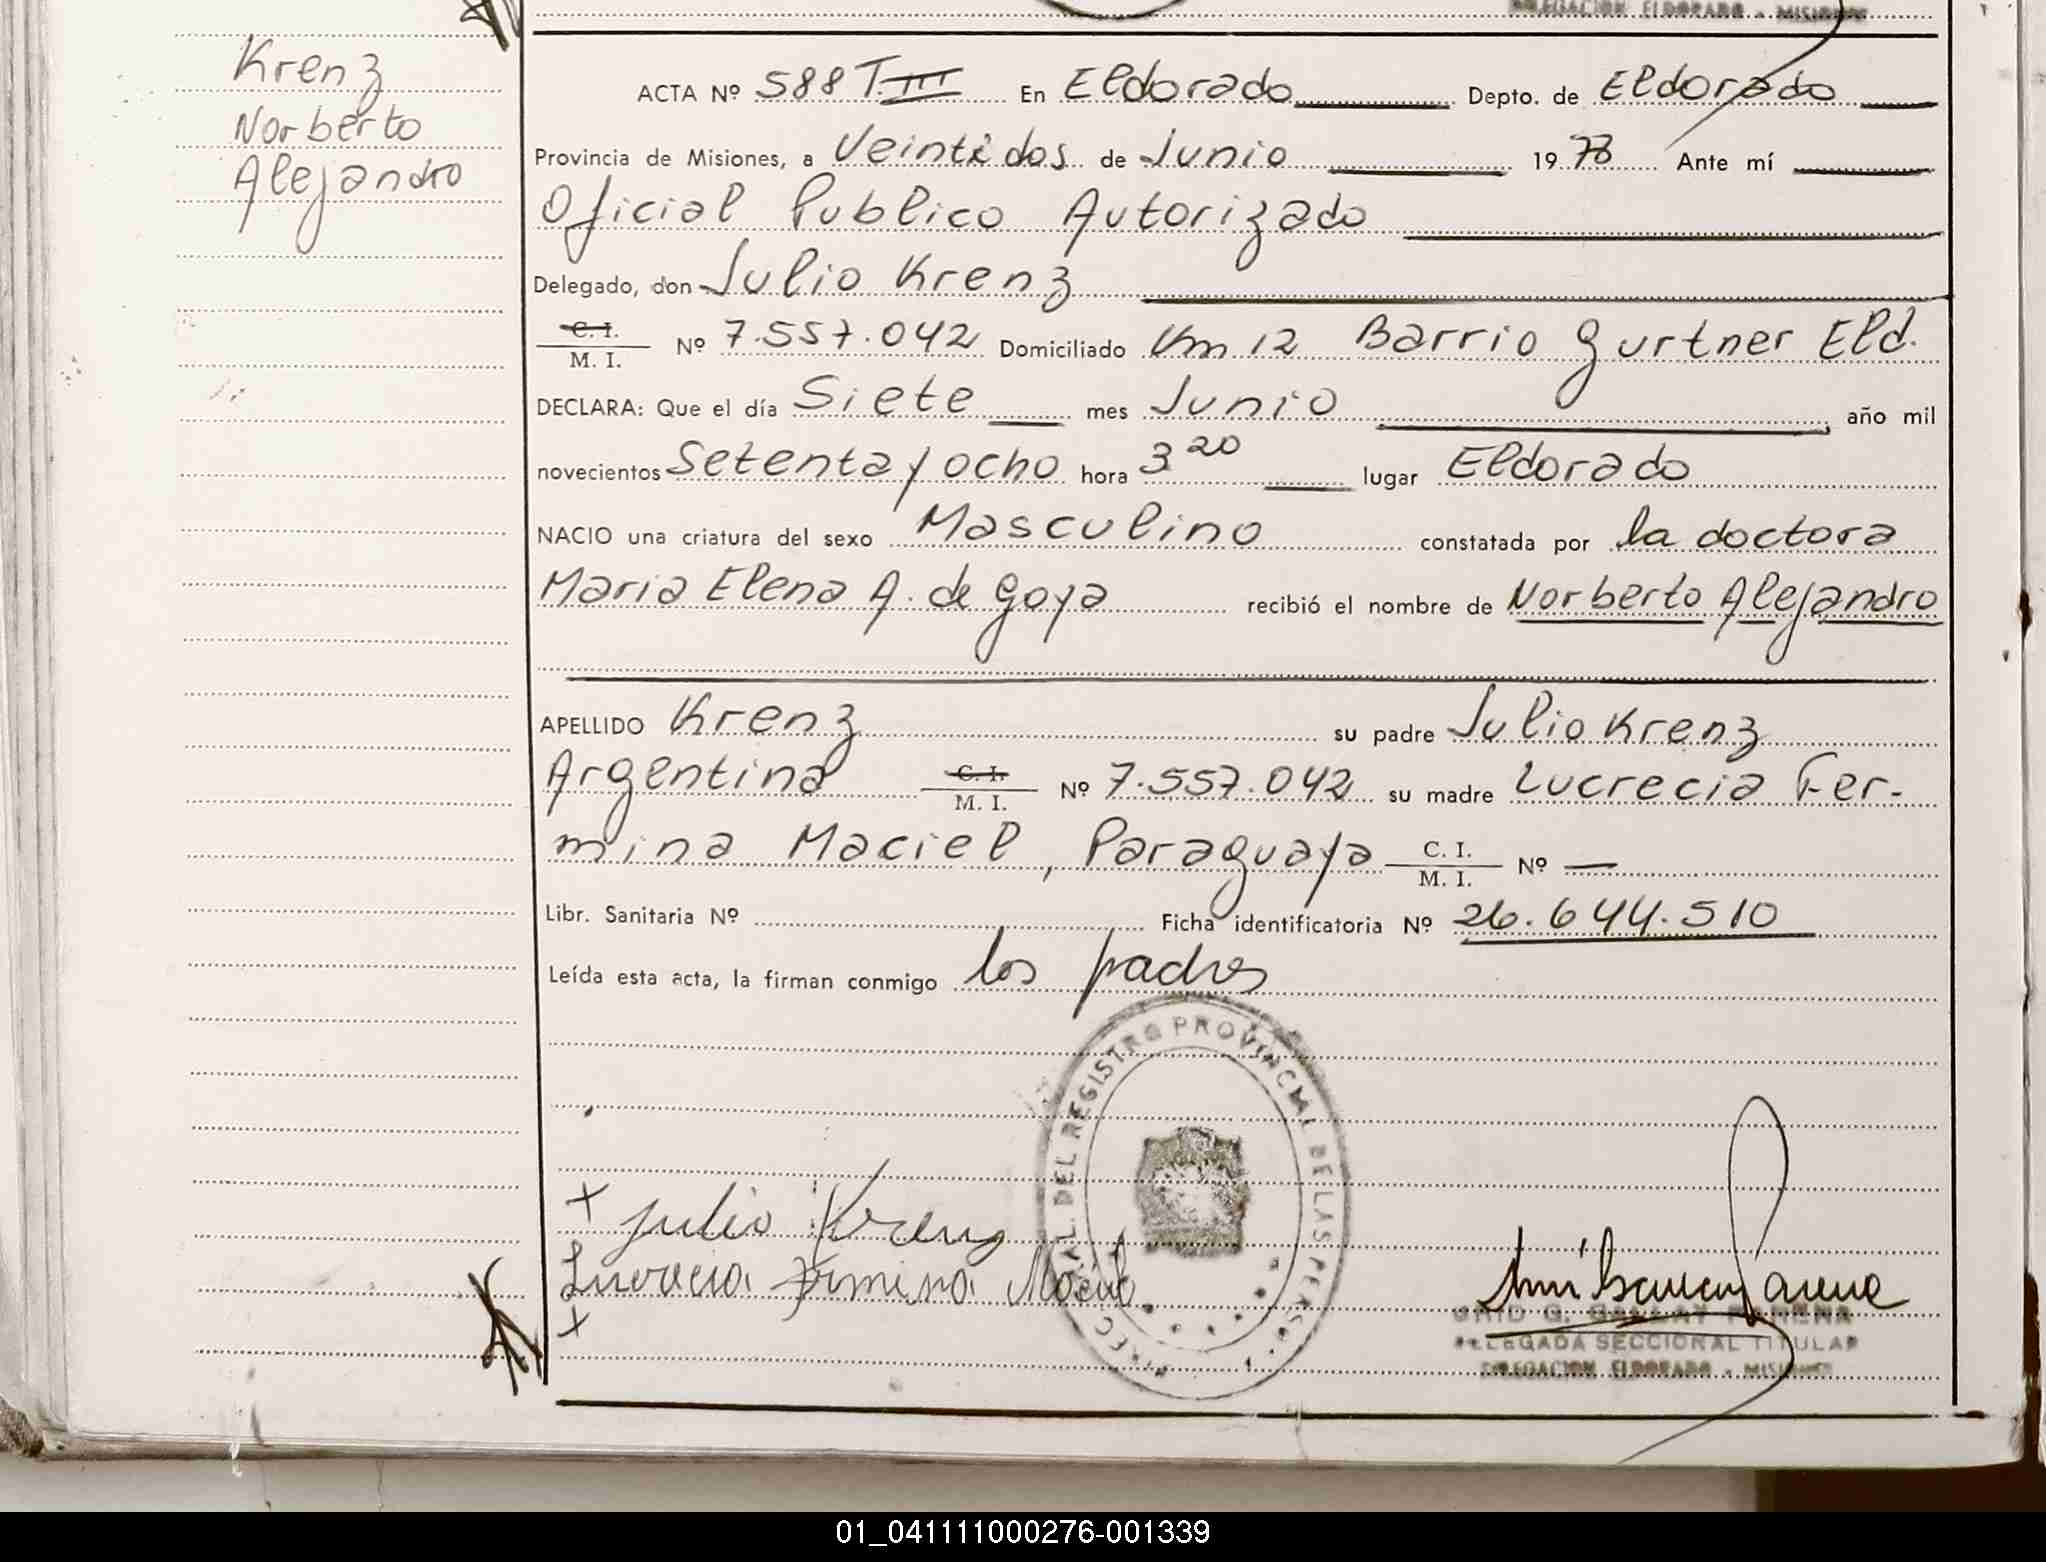 DELEGACION ELDORADO - MISIONES
Krenz
Norberto
Alejandro
ACTA Nº 588 T. III En Eldorado Depto. de Eldorado
Provincia de Misiones, a Veintidos de Junio 1978 Ante mí
Oficial Publico Autorizado
Delegado, don Julio Krenz
C. I.
M. I. Nº 7.557.042 Domiciliado Km 12 Barrio Gurtner Eld.
DECLARA: Que el día Siete mes Junio año mil
novecientos Setenta y ocho hora 3 20 lugar Eldorado
NACIO una criatura del sexo Masculino constatada por la doctora
Maria Elena A. de Goya recibió el nombre de Norberto Alejandro
APELLIDO Krenz su padre Julio Krenz
Argentina C. I. M. I. Nº 7.557.042 su madre Lucrecia Fer-
mina Maciel, Paraguaya C. I. M. I. Nº —
Libr. Sanitaria Nº Ficha identificatoria Nº 26.644.510
Leída esta acta, la firman conmigo los padres
DEL REGISTRO PROVINCIAL DE LAS PERSO
x Julio Krenz
Lucrecia Fermina Maciel
x
G. GALLAY PARENA
DELEGADA SECCIONAL TITULAR
DELEGACION ELDORADO - MISIONES
01_041111000276-001339